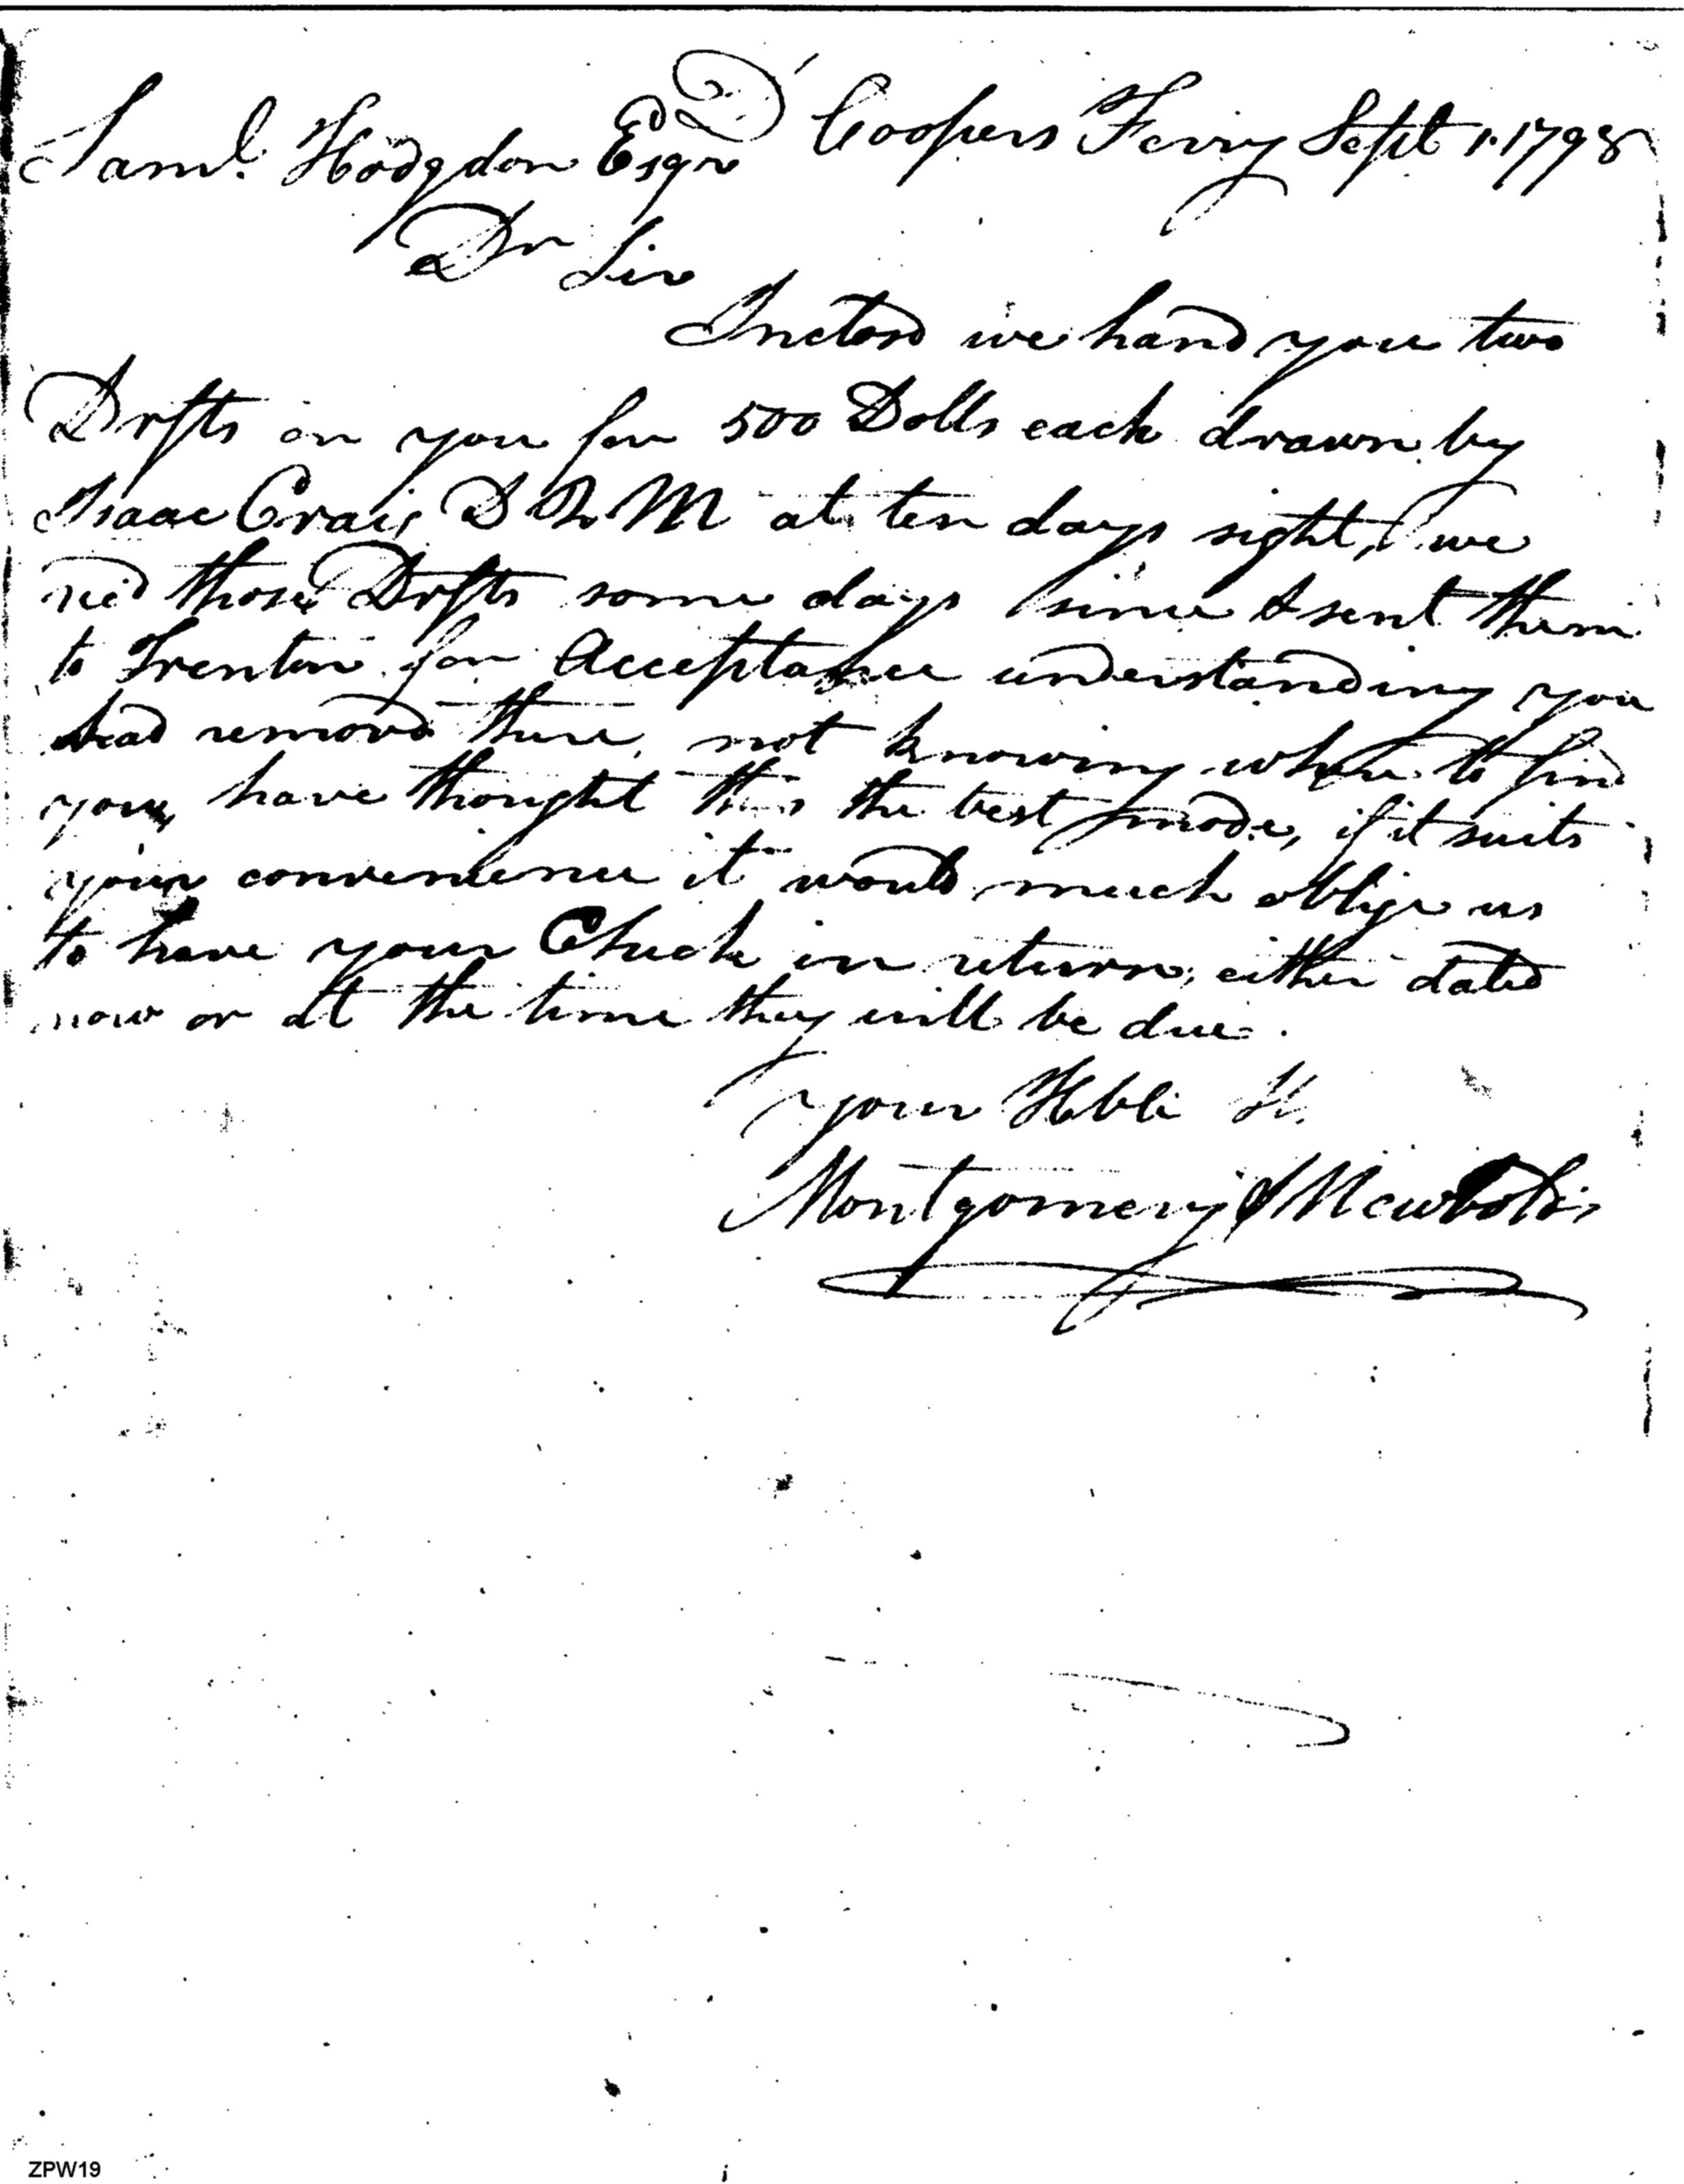 Coopers Ferry Sept 1. 1798
Saml. Hodgdon Esqr
Dr Sir
Inclosd we hand you two
Drfts on you for 500 Dolls each drawn by
Isaac Craig D Q M at ten days sight, we
recd those Drfts some days since & sent them
to Trenton for Acceptance understanding you
had removd there, not knowing where to find
you, have thought this the best mode, if it suits
your convenience it would much oblige us
to have your Check in return, either dated
now or at the time they will be due.
your Hble St.
Montgomery & Newbolds
ZPW19